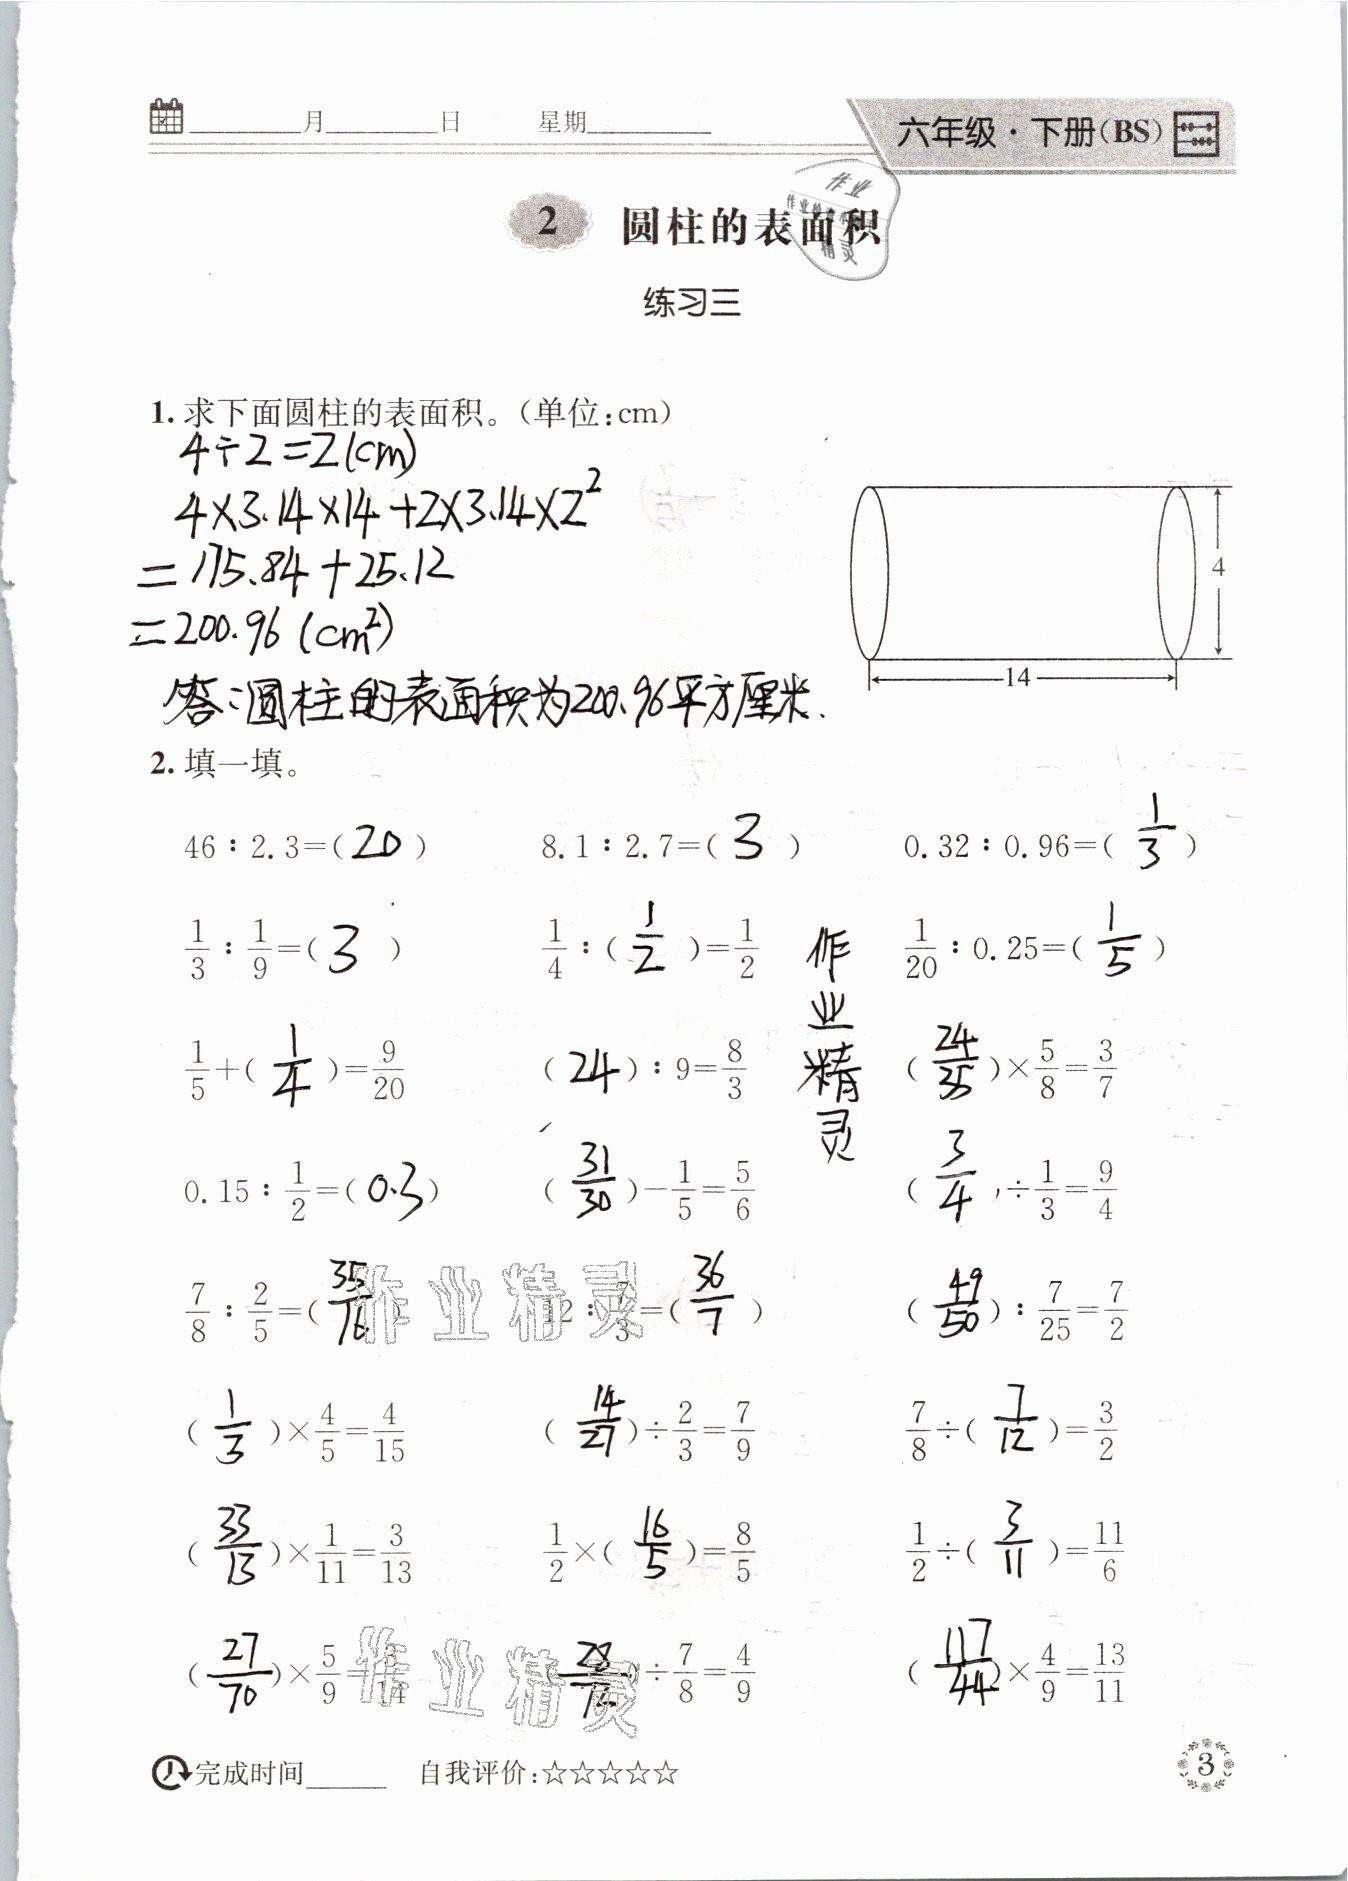 ____月____日 星期____
六年级·下册(BS)
作业
作业检查小
精灵
2 圆柱的表面积
练习三
1. 求下面圆柱的表面积。(单位:cm)
4÷2=2(cm)
4×3.14×14+2×3.14×2²
=175.84+25.12
=200.96(cm²)
答:圆柱的表面积为200.96平方厘米.
4
14
2. 填一填。
46:2.3=(20) 8.1:2.7=(3) 0.32:0.96=(1/3)
1/3:1/9=(3) 1/4:(1/2)=1/2 1/20:0.25=(1/5)
1/5+(1/4)=9/20 (24):9=8/3 (24/35)×5/8=3/7
0.15:1/2=(0.3) (31/30)-1/5=5/6 (3/4)÷1/3=9/4
7/8:2/5=(35/16) 12:7/3=(36/7) (49/50):7/25=7/2
(1/3)×4/5=4/15 (14/27)÷2/3=7/9 7/8÷(7/12)=3/2
(33/13)×1/11=3/13 1/2×(16/5)=8/5 1/2÷(3/11)=11/6
(27/70)×5/9=3/14 (28/72)÷7/8=4/9 (117/44)×4/9=13/11
作业精灵
作业精灵
作业精灵
完成时间____ 自我评价:☆☆☆☆☆
3